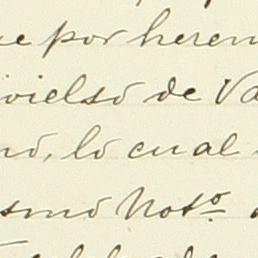 ue por heren
ivielso de Va
no, lo cual
smo Noto.